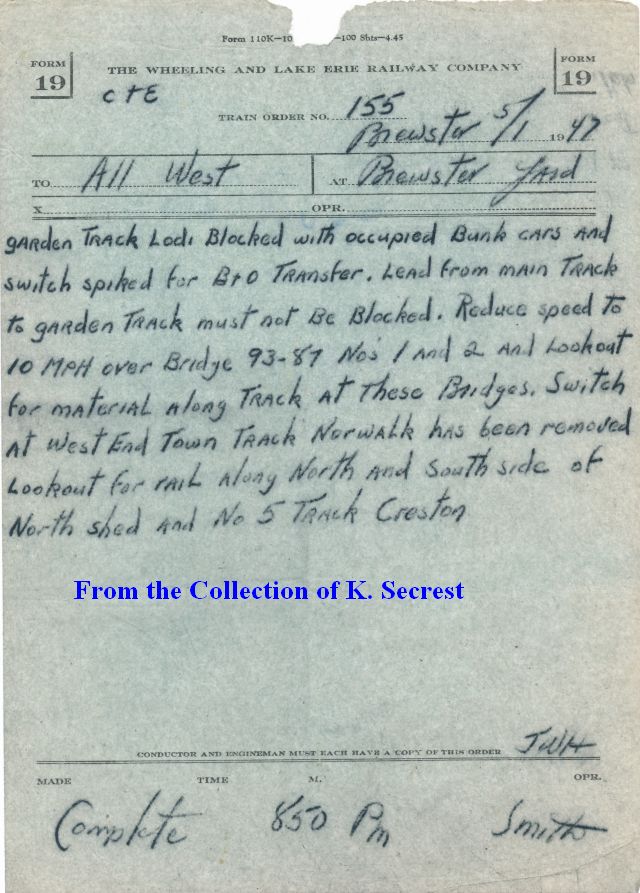 Form 110K—10 —100 Shts—4.45
FORM 19
FORM 19
THE WHEELING AND LAKE ERIE RAILWAY COMPANY
C+E
TRAIN ORDER NO. 155
Brewster 5/1 1947
TO All West AT Brewster Yard
X OPR.
Garden Track Lodi Blocked with occupied Bunk cars and
switch spiked for B+O Transfer. Lead from main Track
to garden Track must not Be Blocked. Reduce speed to
10 MPH over Bridge 93-87 No's 1 and 2 and Lookout
for material along Track at These Bridges. Switch
at West End Town Track Norwalk has been removed
Lookout for rail along North and South side of
North shed and No 5 Track Creston
From the Collection of K. Secrest
JWH
CONDUCTOR AND ENGINEMAN MUST EACH HAVE A COPY OF THIS ORDER
MADE TIME M. OPR.
Complete 850 Pm Smith